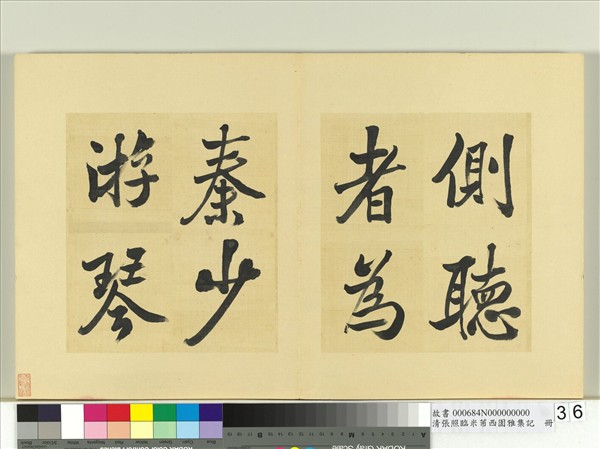 側聽
者為
秦少
游琴
故書 000684N000000000
清張照臨米芾西園雅集記 冊
36
KODAK Gray Scale